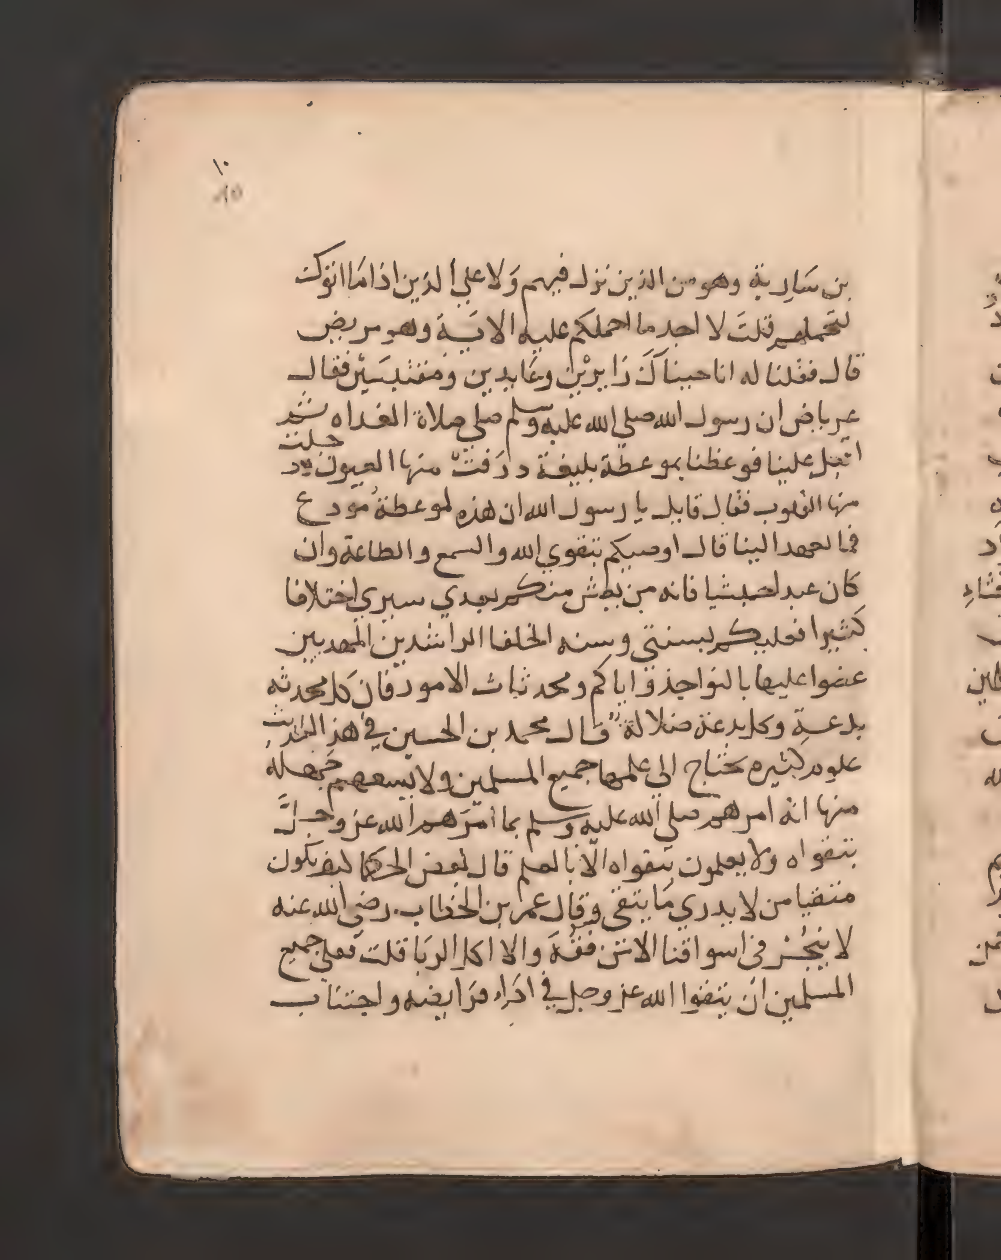 ١٠
بن سارية وهو من الذين نزل فيهم ولا علي الذين اذا ما اتوك
لتحملهم قلت لا اجد ما احملكم عليه الاية وهو مريض
قال فقلنا له انا جيناك زايرين وعايدين ومقتبسين فقال
عرباض ان رسول الله صلي الله عليه وسلم صلي صلاة الغداه ثم
اقبل علينا فوعظنا بموعظة بليغة ذرفت منها العيون ووجلت
منها القلوب فقال قايل يا رسول الله ان هذه لموعظة مودع
فما تعهد الينا قال اوصيكم بتقوي الله والسمع والطاعة وان
كان عبدا حبشيا فانه من يعش منكم بعدي سيري اختلافا
كثيرا فعليكم بسنتي وسنه الخلفا الراشدين المهديين
عضوا عليها بالنواجذ واياكم ومحدثات الامور فان كل محدثه
بدعة وكل بدعة ضلالة قال محمد بن الحسين في هذا الحديث
علوم كثيره يحتاج الي علمها جميع المسلمين ولا يسعهم جهله
منها انه امرهم صلي الله عليه وسلم بما امرهم الله عز وجل
بتقواه ولا يعلمون بتقواه الا بالعلم قال بعض الحكما كيف يكون
متقيا من لا يدري ما يتقي وقال عمر بن الخطاب رضي الله عنه
لا يتجر في اسواقنا الا من فقه والا اكل الربا قلت فعلي جميع
المسلمين ان يتقوا الله عز وجل في اداء فرايضه واجتناب